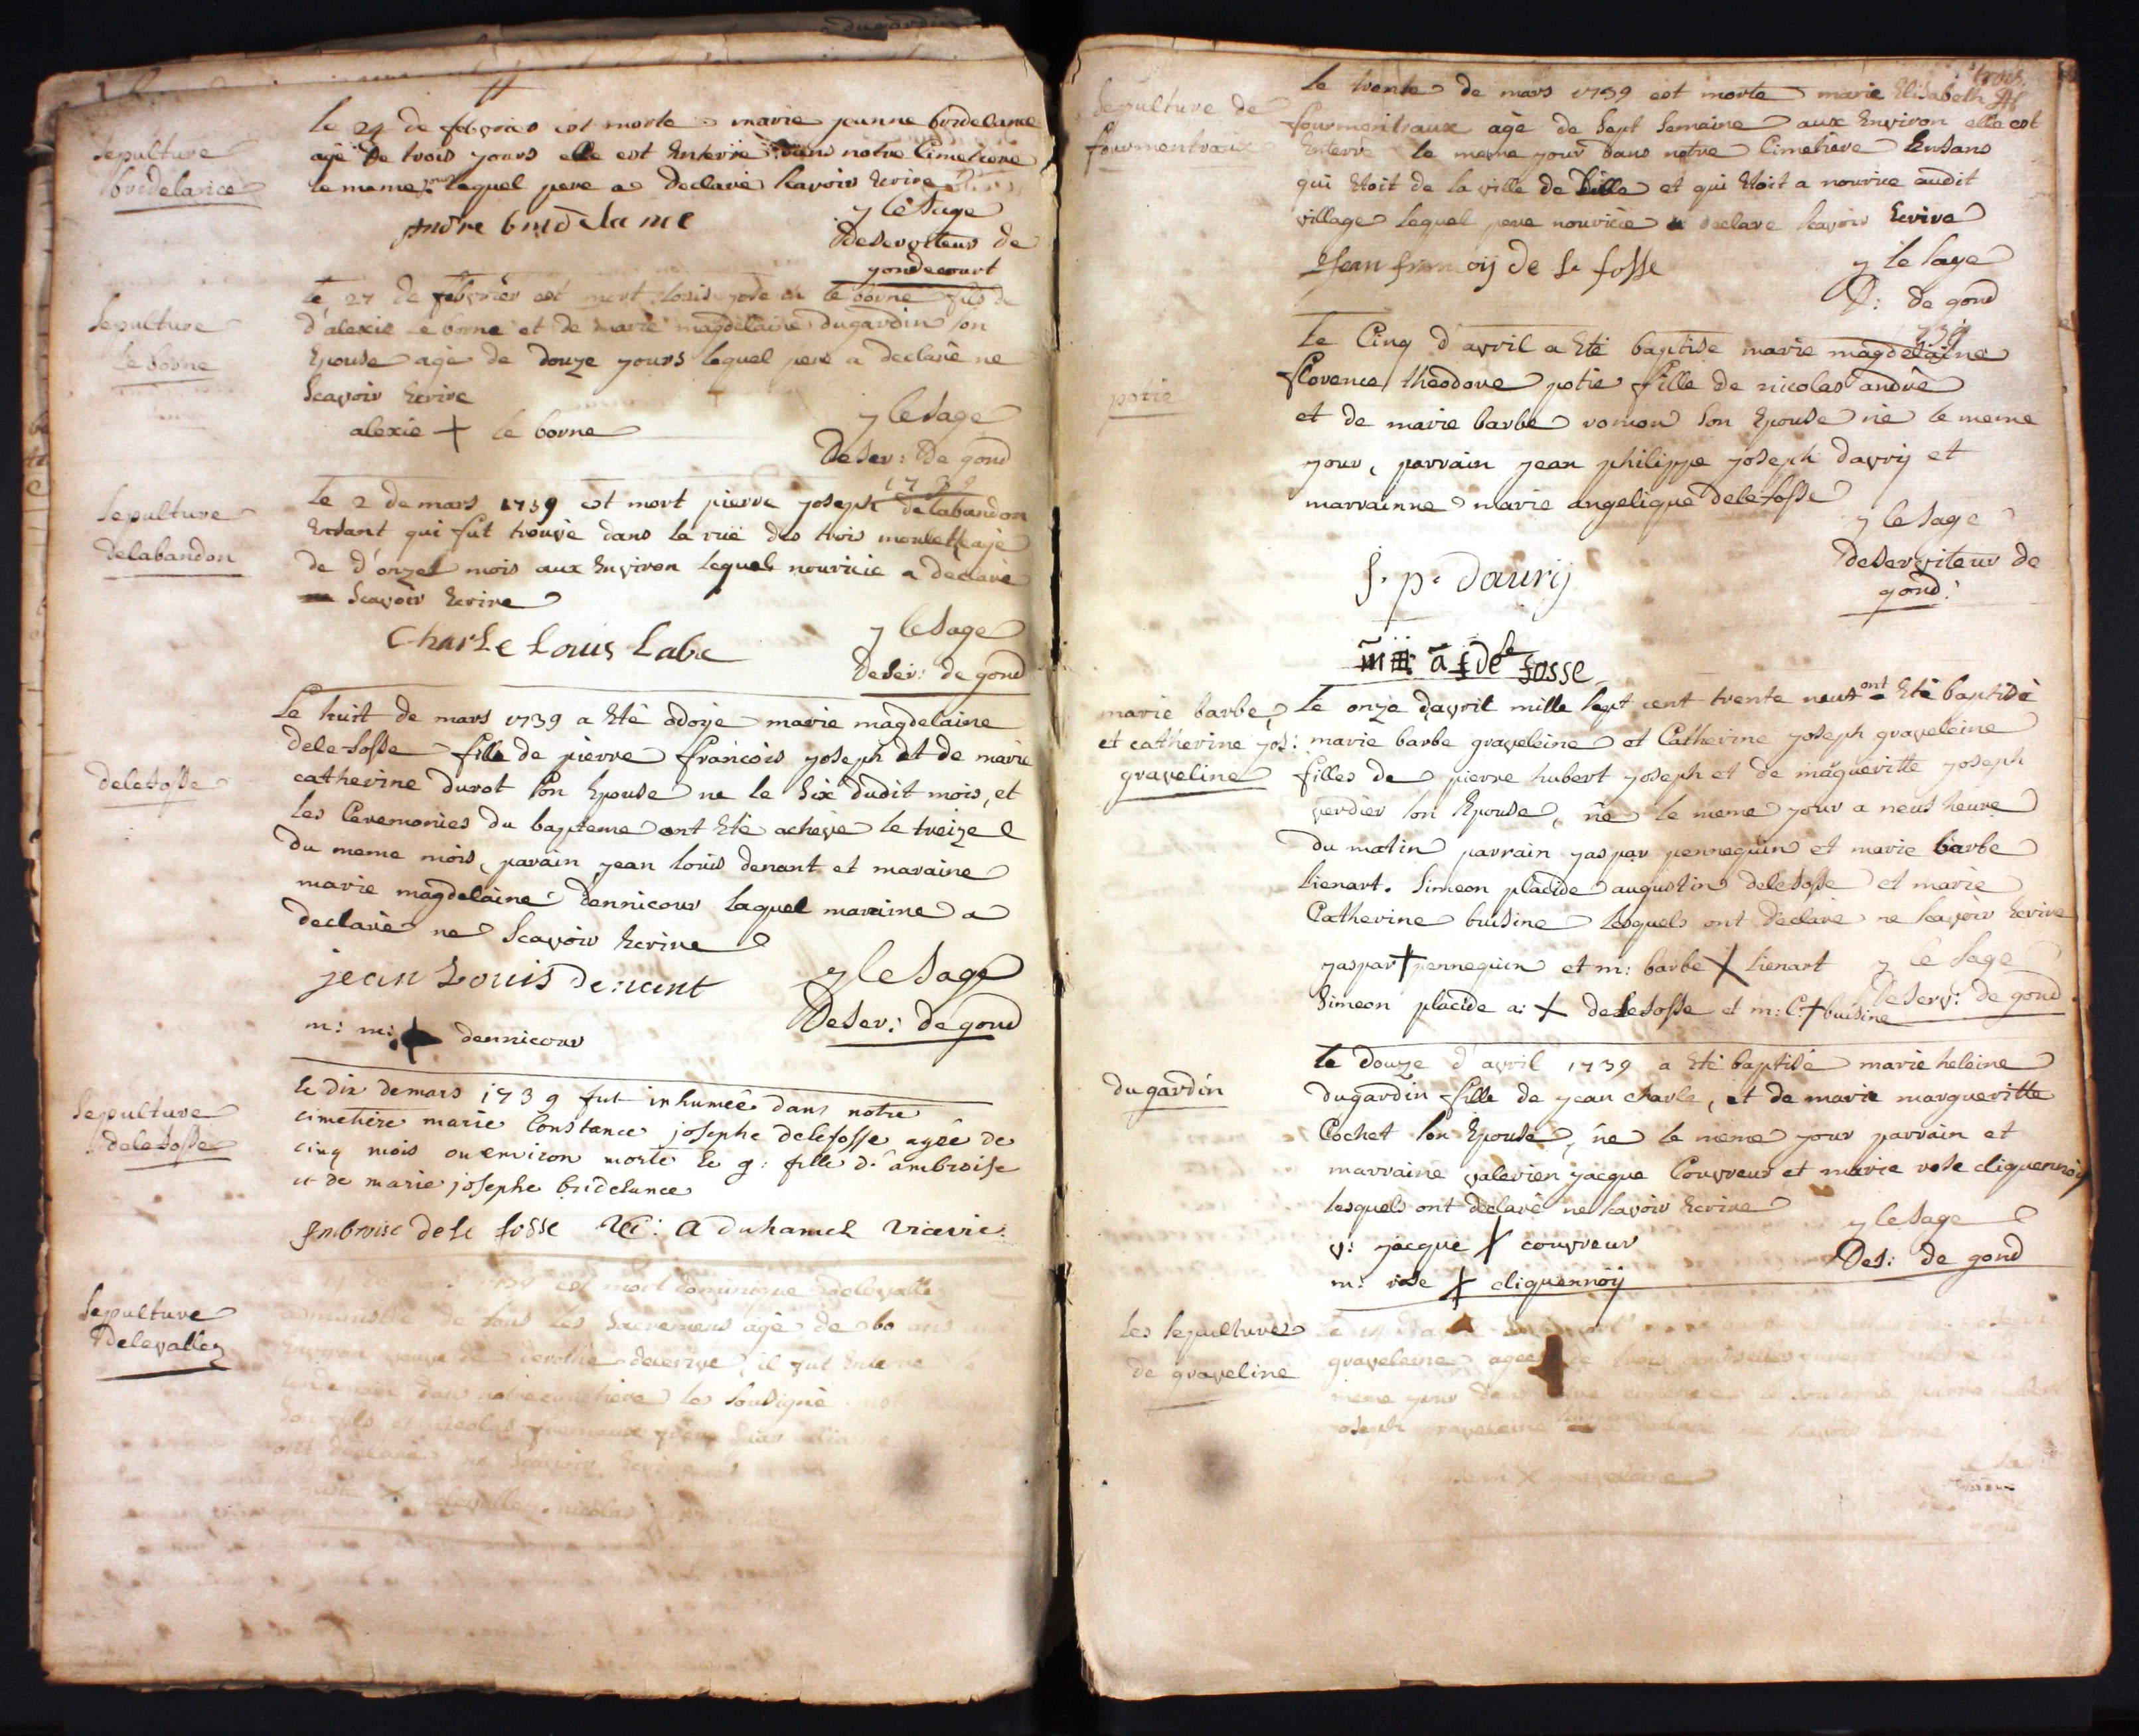 Sepulture
bridelance
le 24 de febvrier est morte marie jeanne bridelance
agé de trois yours elle est Enterré dans notre Cimetiere
le meme jour lequel pere a declaré scavoir Ecrire
Andre bridelance
y le Sage
Deserviteur de
gondecourt
Sepulture
le borne
le 27 de febvrier est mort louis joseph le borne fils de
d'alexie le borne et de marie magdelaine dugardin son
Epouse agé de douze yours lequel pere a declaré ne
Scavoir Ecrire
alexie + le borne
y le Sage
Deser: de gond
1739
Sepulture
delabandon
le 2 de mars 1739 est mort pierre yoseph delabandon
Enfant qui fut trouvé dans la rüe des trois moulettes agé
de d'onze mois aux Environ lequel nouricie a declaré
Scavoir Ecrire
Charle Louis Labe
y le Sage
Deser: de gond
delefosse
Le huit de mars 1739 a Eté odoyé marie magdelaine
delefosse fille de pierre francois yoseph et de marie
catherine durot son Epouse ne le Six dudit mois, et
les Ceremonies du bapteme ont Eté achevé le treize
du meme mois, parain jean louis denant et maraine
marie magdelaine dennicour laquel maraine a
declaré ne Scavoir Ecrire
jean Louis denant
y le Sage
m: m: + dennicour
Deser: de gond
Sepulture
delefosse
le dix de mars 1739 fut inhumée dans notre
cimetiere marie Constance josephe delefosse agée de
cinq mois ou environ morte le 9: fille d'ambroise
et de marie josephe bridelance
Ambroise dele fosse A Duhamel vicerie.
Sepulture
Delevallez
est mort dominique delevalle
administré de tous les Sacremens agé de 60 ans
Environ veuve de il fut Enterré
lendemain dans notre cimetiere le Sousigné
Son fils et nicolas
ont declaré ne Scavoir Ecrire
+ delevalle nicolas
Sepulture de
fourmentraux
le trente de mars 1739 est morte marie Elisabeth
fourmentraux agé de Sept Semaine aux Environ elle est
Enterré le meme your dans notre Cimetiere Enfans
qui Etoit de la ville de Lille et qui Etoit a nourice audit
village lequel pere nouricie a declaré scavoir Ecrire
Jean francoij de le fosse
y le Sage
D: de gond
1739
potie
Le Cinq d'avril a Eté baptise marie magdelaine
florence théodore potie fille de nicolas andré
et de marie barbe romon Son Epouse né le meme
your, parrain jean philippe yoseph davrij et
marrainne marie angelique delefosse
y le Sage
Deserviteur de
gond:
j. p. daurij
a: dele fosse
marie barbe,
et catherine jos:
graveline
le onze d'avril mille Sept cent trente neuf ont Eté baptisé
marie barbe graveleine et Catherine yoseph graveleine
filles de pierre hubert yoseph et de magueritte yoseph
verdier son Epouse, né le meme your a neuf heure
du matin parrain yaspar pennequin et marie barbe
lienart. Simeon placide augustin delefosse et marie
Catherine buisine lesquels ont declaré ne scavoir Ecrire
yaspar + pennequin et m: barbe + lienart
y le Sage
Simeon placide a: + delefosse et m: C: + buisine
Deserv: de gond
dugardin
le douze d'avril 1739 a Eté baptisé marie heleine
dugardin fille de jean charle, et de marie margueritte
Cochet son Epouse, né le meme your parrain et
marraine valerien yacque Couvreur et marie rose cliquennoij
lesquels ont declaré ne scavoir Ecrire
v: yacque + couvreur
y le Sage
m: rose + cliquennoij
Des: de gond
les Sepultures
de graveline
le 14
graveleine agees de trois
meme your dans notre cimetiere
yoseph graveleine declaré ne scavoir Ecrire
+ graveleine